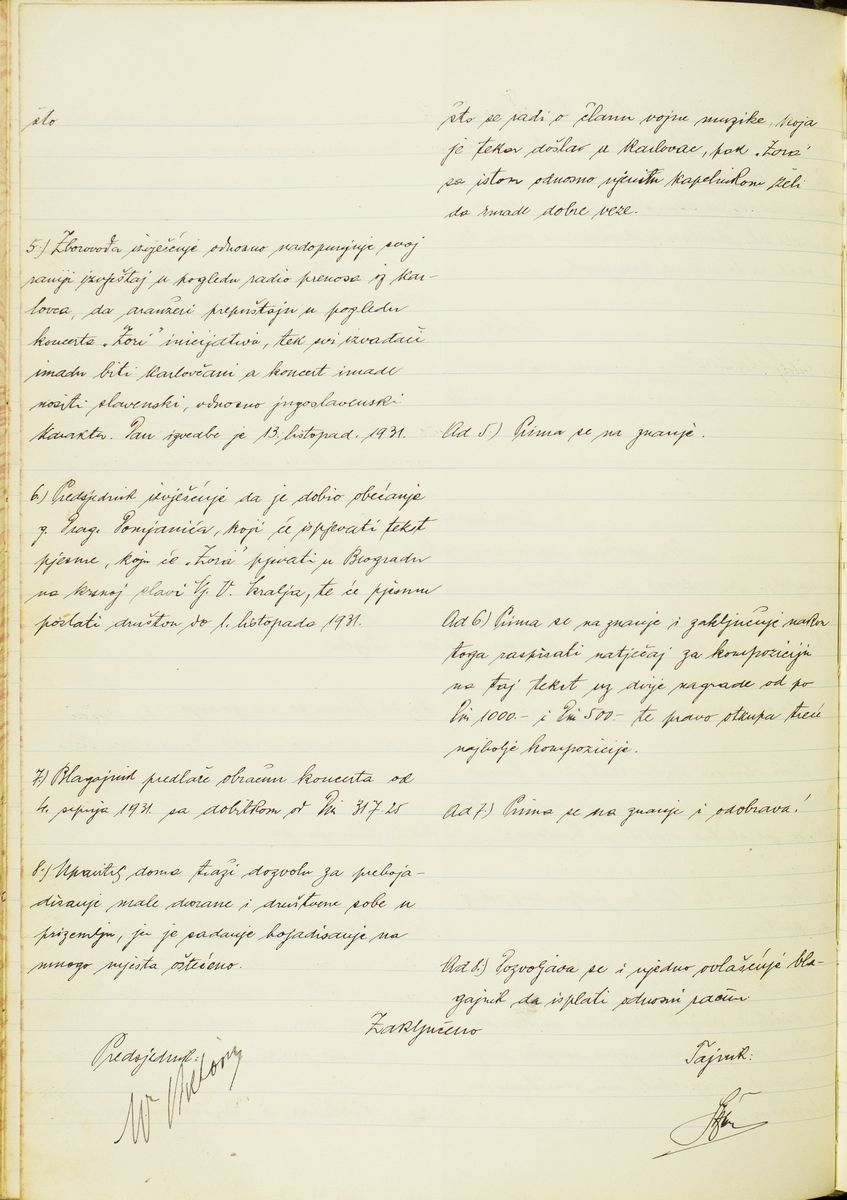 što
što se radi o članu vojne muzike, koja
je tekar došla u Karlovac, pak „Zora"
sa istom odnosno njenim kapelnikom želi
da imade dobre veze.
5.) Zborovođa izvješćuje odnosno nadopunjuje svoj
raniji izvještaj u pogledu radio prenosa iz Kar-
lovca, da aranžeri prepuštaju u pogledu
koncerta „Zori" inicijativu, tek svi izvađači
imadu biti Karlovčani a koncert imade
nositi slavenski, odnosno jugoslavenski
karakter. Dan izvedbe je 13. listopad. 1931.
Ad 5.) Prima se na znanje.
6.) Predsjednik izvješćuje da je dobio obećanje
g. Drag. Domjanića, koji će ispjevati tekst
pjesme, koju će „Zora" pjevati u Beogradu
na krsnoj slavi Nj. V. Kralja, te će pjesmu
poslati društvu do 1. listopada 1931.
Ad 6.) Prima se na znanje i zaključuje nakon
toga raspisati natječaj za kompoziciju
na taj tekst uz dvije nagrade od po
Din 1000.- i Din 500.- te pravo otkupa treće
najbolje kompozicije.
7.) Blagajnik predlaže obračun koncerta od
4. srpnja 1931. sa dobitkom od Din 317.25
Ad 7.) Prima se na znanje i odobrava!
8.) Upravitelj doma traži dozvolu za preboja-
disanje male dvorane i društvene sobe u
prizemlju, jer je sadanje bojadisanje na
mnogo mjesta oštećeno.
Ad 8.) Dozvoljava se i ujedno ovlašćuje bla-
gajnik da isplati odnosni račun
Zaključeno
Predsjednik:
Tajnik: